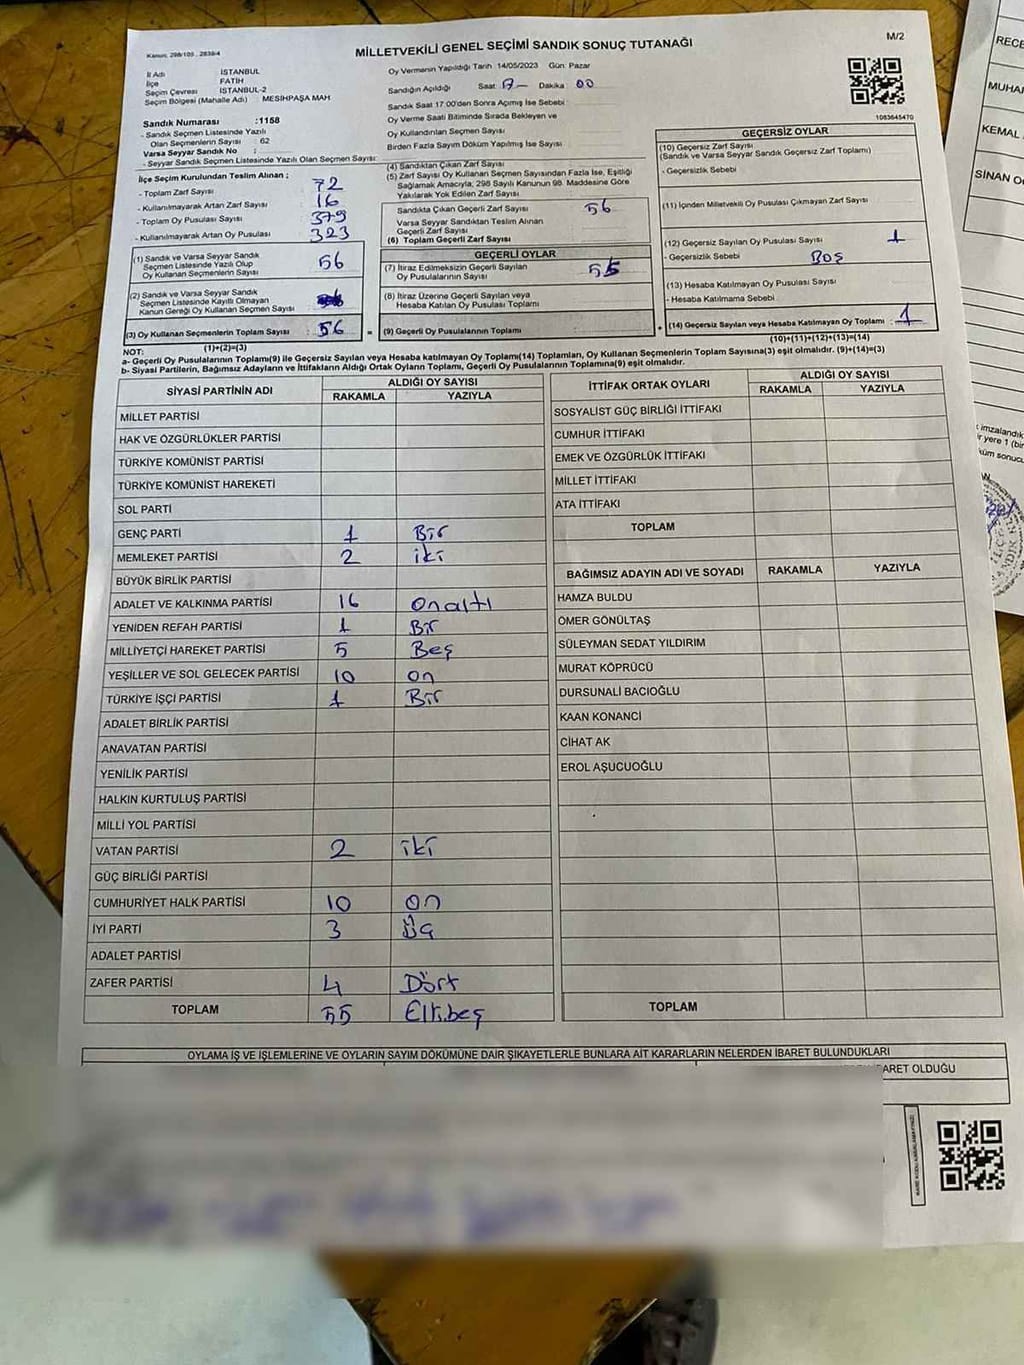 Kanun: 298/105 , 2839/4
MİLLETVEKİLİ GENEL SEÇİMİ SANDIK SONUÇ TUTANAĞI
M/2
İl Adı : İSTANBUL
İlçe : FATİH
Seçim Çevresi : İSTANBUL-2
Seçim Bölgesi (Mahalle Adı) : MESİHPAŞA MAH.
Sandık Numarası :1158
- Sandık Seçmen Listesinde Yazılı
Olan Seçmenlerin Sayısı : 62
Varsa Seyyar Sandık No :
- Seyyar Sandık Seçmen Listesinde Yazılı Olan Seçmen Sayısı:
İlçe Seçim Kurulundan Teslim Alınan ;
- Toplam Zarf Sayısı : 72
- Kullanılmayarak Artan Zarf Sayısı : 16
- Toplam Oy Pusulası Sayısı : 379
- Kullanılmayarak Artan Oy Pusulası : 323
(1) Sandık ve Varsa Seyyar Sandık
Seçmen Listesinde Yazılı Olup
Oy Kullanan Seçmenlerin Sayısı : 56
(2) Sandık ve Varsa Seyyar Sandık
Seçmen Listesinde Kayıtlı Olmayan
Kanun Gereği Oy Kullanan Seçmen Sayısı :
(3) Oy Kullanan Seçmenlerin Toplam Sayısı : 56
(1)+(2)=(3)
Oy Vermenin Yapıldığı Tarih 14/05/2023 Gün: Pazar
Sandığın Açıldığı Saat 17 Dakika 00
Sandık Saat 17:00'den Sonra Açılmış İse Sebebi :
Oy Verme Saati Bitiminde Sırada Bekleyen ve
Oy Kullandırılan Seçmen Sayısı :
Birden Fazla Sayım Döküm Yapılmış İse Sayısı :
(4) Sandıktan Çıkan Zarf Sayısı :
(5) Zarf Sayısı Oy Kullanan Seçmen Sayısından Fazla İse, Eşitliği
Sağlamak Amacıyla; 298 Sayılı Kanunun 98. Maddesine Göre
Yakılarak Yok Edilen Zarf Sayısı
Sandıkta Çıkan Geçerli Zarf Sayısı : 56
Varsa Seyyar Sandıktan Teslim Alınan
Geçerli Zarf Sayısı
(6) Toplam Geçerli Zarf Sayısı
GEÇERLİ OYLAR
(7) İtiraz Edilmeksizin Geçerli Sayılan
Oy Pusulalarının Sayısı : 55
(8) İtiraz Üzerine Geçerli Sayılan veya
Hesaba Katılan Oy Pusulası Toplamı
= (9) Geçerli Oy Pusulalarının Toplamı
1083645470
GEÇERSİZ OYLAR
(10) Geçersiz Zarf Sayısı
(Sandık ve Varsa Seyyar Sandık Geçersiz Zarf Toplamı)
- Geçersizlik Sebebi :
(11) İçinden Milletvekili Oy Pusulası Çıkmayan Zarf Sayısı
(12) Geçersiz Sayılan Oy Pusulası Sayısı : 1
- Geçersizlik Sebebi : Boş
(13) Hesaba Katılmayan Oy Pusulası Sayısı
- Hesaba Katılmama Sebebi
+ (14) Geçersiz Sayılan veya Hesaba Katılmayan Oy Toplamı : 1
(10)+(11)+(12)+(13)=(14)
NOT:
a- Geçerli Oy Pusulalarının Toplamı(9) ile Geçersiz Sayılan veya Hesaba katılmayan Oy Toplamı(14) Toplamları, Oy Kullanan Seçmenlerin Toplam Sayısına(3) eşit olmalıdır. (9)+(14)=(3)
b- Siyasi Partilerin, Bağımsız Adayların ve İttifakların Aldığı Ortak Oyların Toplamı, Geçerli Oy Pusulalarının Toplamına(9) eşit olmalıdır.
SİYASİ PARTİNİN ADI ALDIĞI OY SAYISI
RAKAMLA YAZIYLA
MİLLET PARTİSİ
HAK VE ÖZGÜRLÜKLER PARTİSİ
TÜRKİYE KOMÜNİST PARTİSİ
TÜRKİYE KOMÜNİST HAREKETİ
SOL PARTİ
GENÇ PARTİ 1 Bir
MEMLEKET PARTİSİ 2 iki
BÜYÜK BİRLİK PARTİSİ
ADALET VE KALKINMA PARTİSİ 16 onaltı
YENİDEN REFAH PARTİSİ 1 Bir
MİLLİYETÇİ HAREKET PARTİSİ 5 Beş
YEŞİLLER VE SOL GELECEK PARTİSİ 10 on
TÜRKİYE İŞÇİ PARTİSİ 1 Bir
ADALET BİRLİK PARTİSİ
ANAVATAN PARTİSİ
YENİLİK PARTİSİ
HALKIN KURTULUŞ PARTİSİ
MİLLİ YOL PARTİSİ
VATAN PARTİSİ 2 iki
GÜÇ BİRLİĞİ PARTİSİ
CUMHURİYET HALK PARTİSİ 10 on
İYİ PARTİ 3 Üç
ADALET PARTİSİ
ZAFER PARTİSİ 4 Dört
TOPLAM 55 Ellibeş
İTTİFAK ORTAK OYLARI ALDIĞI OY SAYISI
RAKAMLA YAZIYLA
SOSYALİST GÜÇ BİRLİĞİ İTTİFAKI
CUMHUR İTTİFAKI
EMEK VE ÖZGÜRLÜK İTTİFAKI
MİLLET İTTİFAKI
ATA İTTİFAKI
TOPLAM
BAĞIMSIZ ADAYIN ADI VE SOYADI RAKAMLA YAZIYLA
HAMZA BULDU
ÖMER GÖNÜLTAŞ
SÜLEYMAN SEDAT YILDIRIM
MURAT KÖPRÜCÜ
DURSUNALİ BACIOĞLU
KAAN KONANCİ
CİHAT AK
EROL AŞUCUOĞLU
TOPLAM
OYLAMA İŞ VE İŞLEMLERİNE VE OYLARIN SAYIM DÖKÜMÜNE DAİR ŞİKAYETLERLE BUNLARA AİT KARARLARIN NELERDEN İBARET BULUNDUKLARI
ARET OLDUĞU
RECE
MUHAR
KEMAL
SİNAN O
imzalandık
yere 1 (bir
küm sonucu